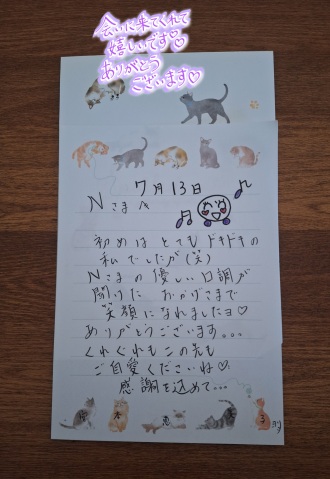 会いに来てくれて
嬉しいです♡
ありがとう
ございます♡
7月13日
Nさまへ
初めは とても ドキドキの
私でしたが(笑)
Nさまの優しい口調が
聞けた おかげさまで
笑顔になれましたヨ♡
ありがとうございます。。。
くれぐれもこの先も
ご自愛くださいね♡
感謝を込めて…